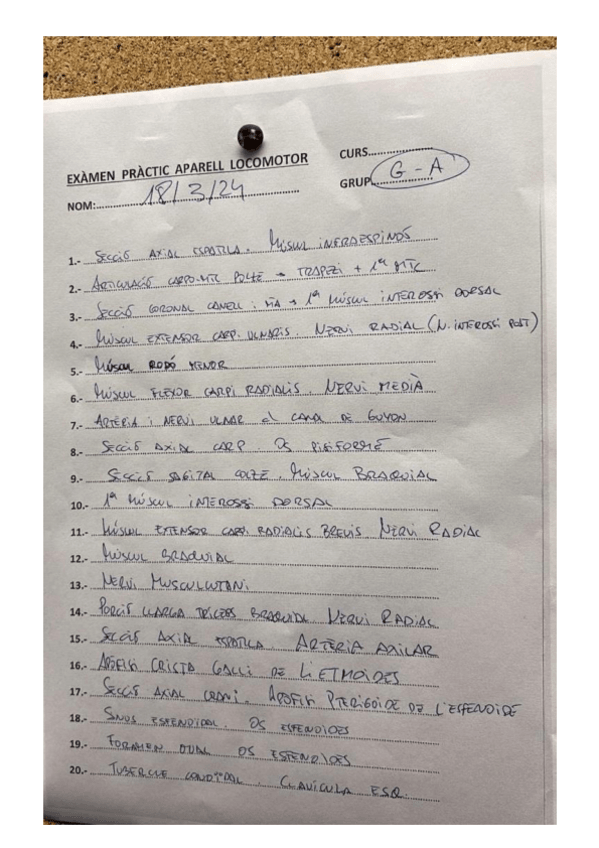 EXÀMEN PRÀCTIC APARELL LOCOMOTOR
CURS
NOM: 18/3/24
GRUP G-A
1.- SECCIÓ AXIAL ESPATLLA. MÚSCUL INFRAESPINÓS
2.- ARTICULACIÓ CARPO-MTC POLZE → TRAPEZI + 1er MTC
3.- SECCIÓ CORONAL CANELL : MÀ → 1er MÚSCUL INTEROSSI DORSAL
4.- MÚSCUL EXTENSOR CARP. ULNARIS. NERVI RADIAL (N. INTEROSSI POST)
5.- MÚSCUL RODÓ MENOR
6.- MÚSCUL FLEXOR CARPI RADIALIS. NERVI MEDIÀ
7.- ARTÈRIA i NERVI ULNAR al CANAL DE GUYON
8.- SECCIÓ AXIAL CARP OS PISIFORME
9.- SECCIÓ SAGITAL COLZE. MÚSCUL BRAQUIAL
10.- 1er MÚSCUL INTEROSSI DORSAL
11.- MÚSCUL EXTENSOR CARPI RADIALIS BREVIS. NERVI RADIAL
12.- MÚSCUL BRAQUIAL
13.- NERVI MUSCULUTANI
14.- PORCIÓ LLARGA TRÍCEPS BRAQUIAL. NERVI RADIAL
15.- SECCIÓ AXIAL ESPATLLA. ARTÈRIA AXILAR
16.- APÒFISI CRISTA GALLI DE L'ETMOIDES
17.- SECCIÓ AXIAL CRANI. APÒFISI PTERIGOIDE DE L'ESFENOIDE
18.- SINUS ESFENOIDAL. OS ESFENOIDES
19.- FORAMEN OVAL OS ESFENOIDES
20.- TUBERCLE CONOIDAL. CLAVÍCULA ESQ.